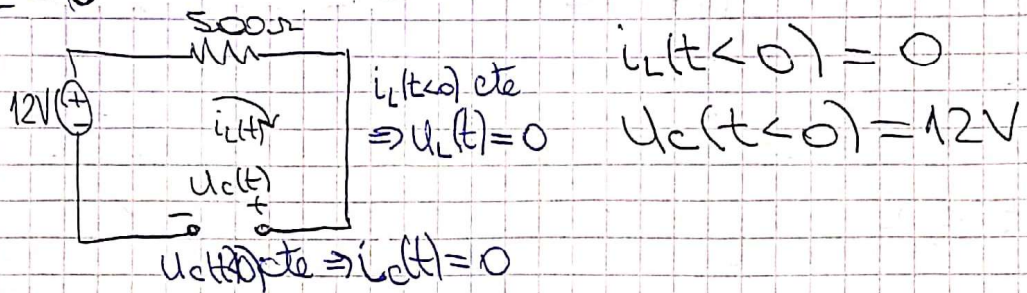 500Ω
12V
+
-
i_L(t)
i_L(t<0) cte
⇒ U_L(t)=0
U_C(t)
- +
cte ⇒ i_C(t)=0
i_L(t<0) = 0
U_C(t<0) = 12V